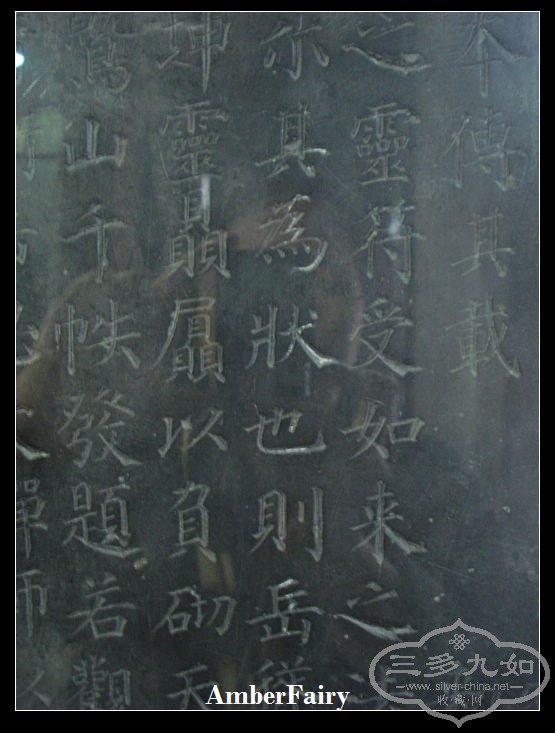 本傳其載
之靈符受如来之
尒其為狀也則岳
坤靈贔屭以負砌天
鷲山千帙發題若觀
AmberFairy
三多九如
www.silver-china.net
收·藏·网